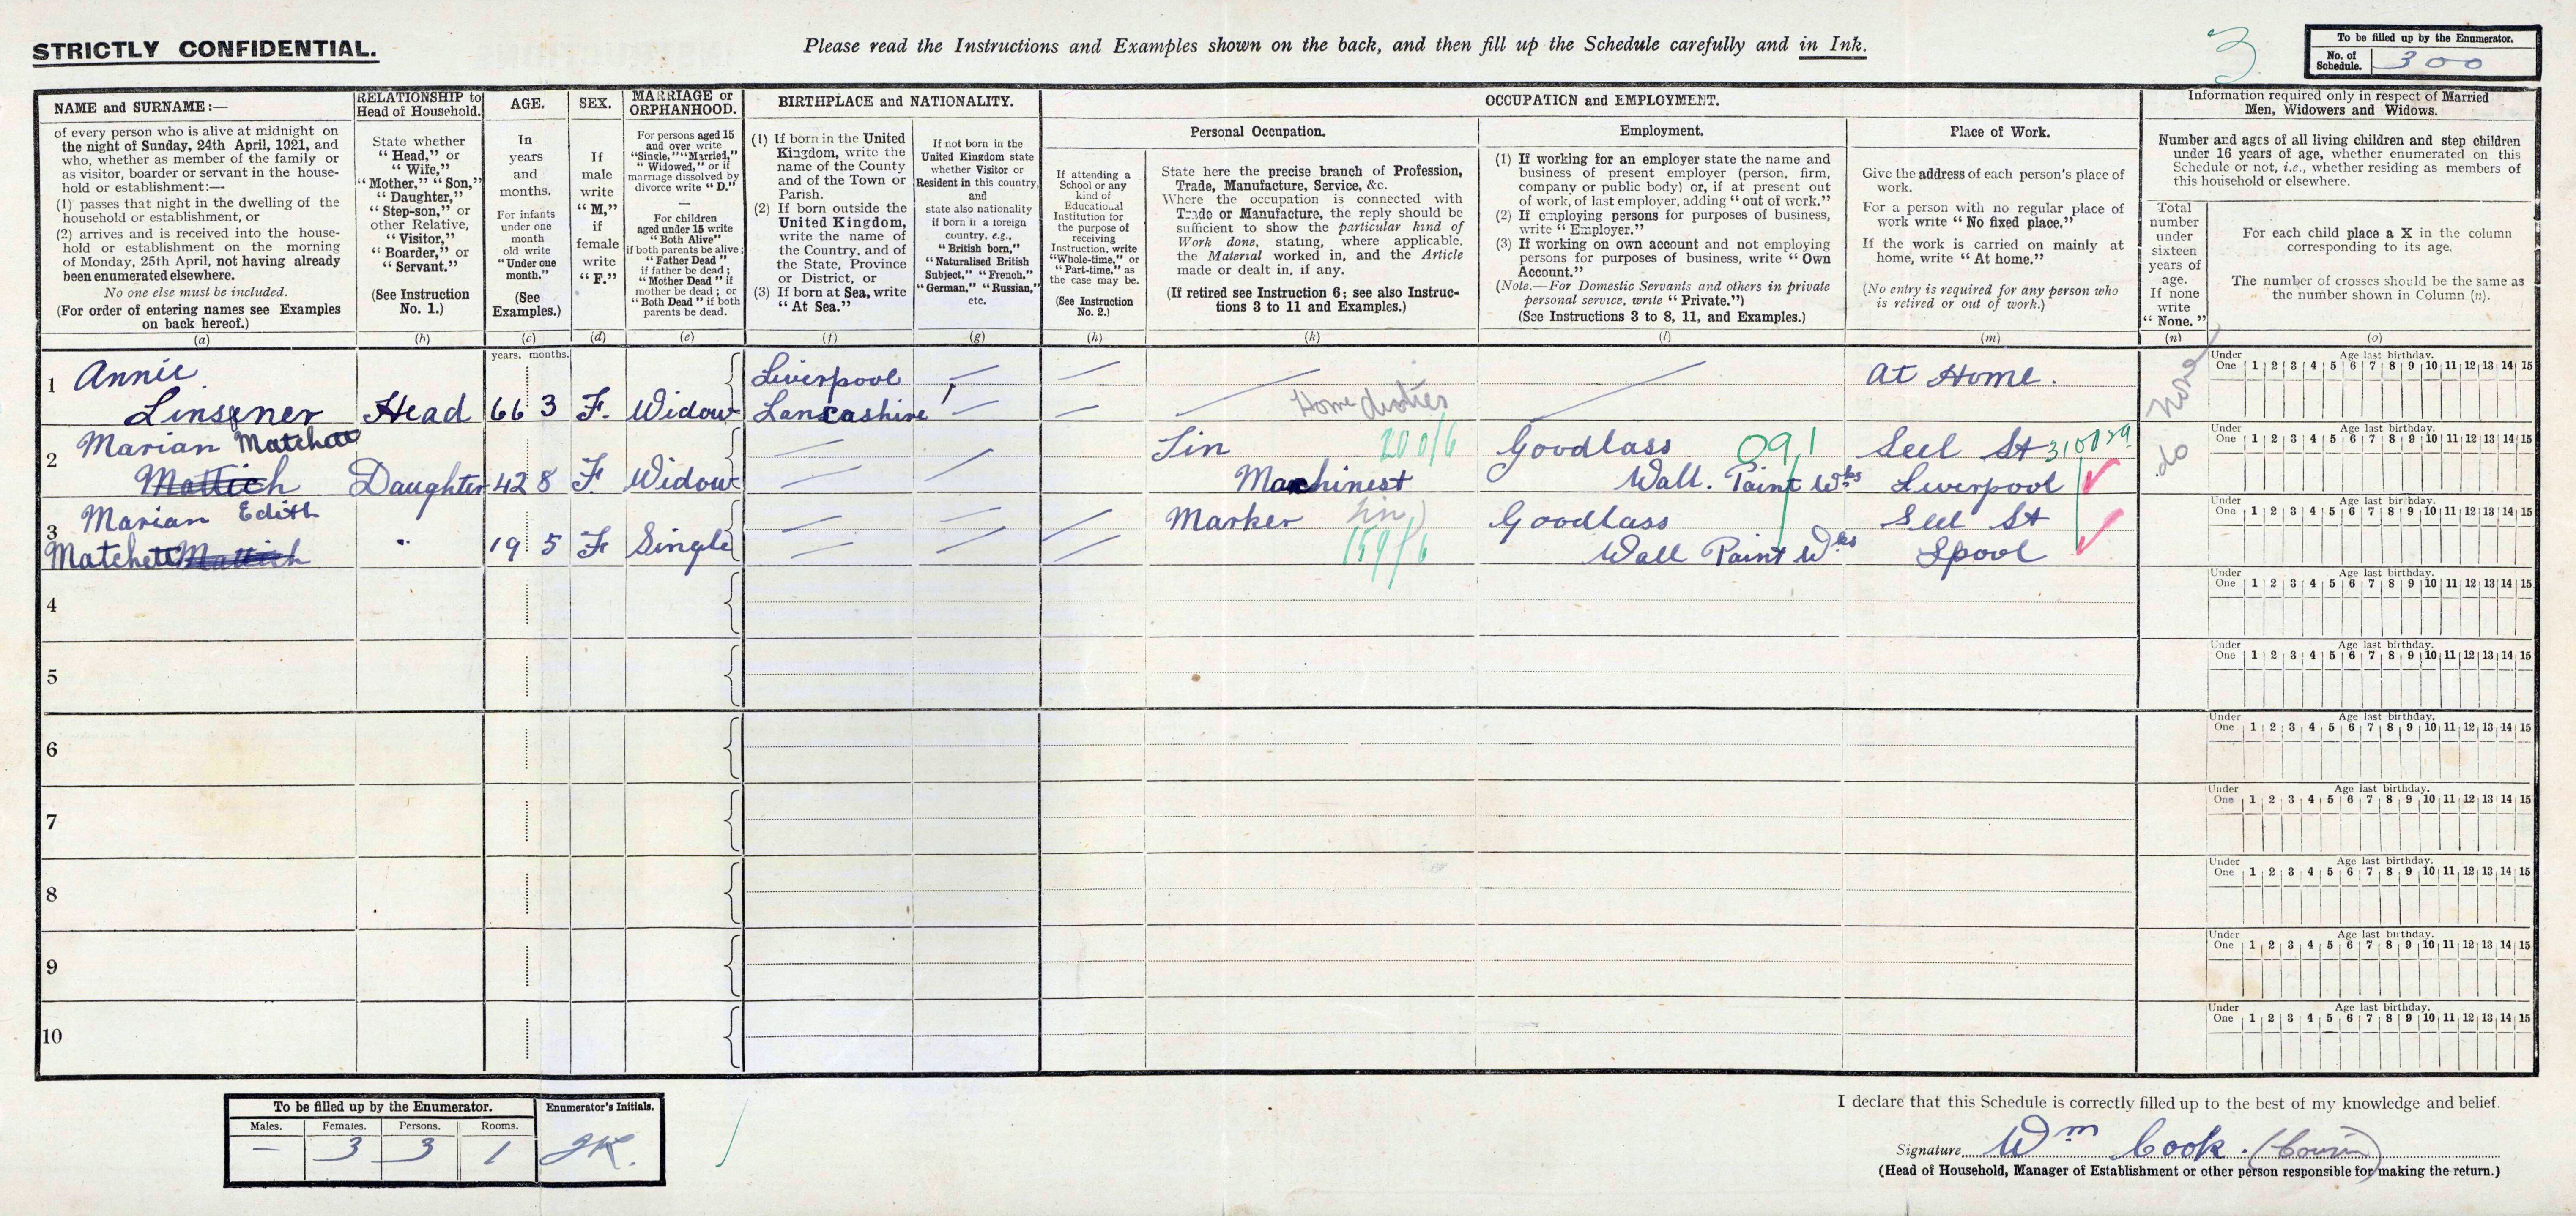 STRICTLY CONFIDENTIAL.
Please read the Instructions and Examples shown on the back, and then fill up the Schedule carefully and in Ink.
3
To be filled up by the Enumerator.
No. of Schedule. 300
NAME and SURNAME:—
of every person who is alive at midnight on
the night of Sunday, 24th April, 1921, and
who, whether as member of the family or
as visitor, boarder or servant in the house-
hold or establishment:—
(1) passes that night in the dwelling of the
household or establishment, or
(2) arrives and is received into the house-
hold or establishment on the morning
of Monday, 25th April, not having already
been enumerated elsewhere.
No one else must be included.
(For order of entering names see Examples
on back hereof.)
(a)
RELATIONSHIP to
Head of Household.
State whether
"Head," or
"Wife,"
"Mother," "Son,"
"Daughter,"
"Step-son," or
other Relative,
"Visitor,"
"Boarder," or
"Servant."
(See Instruction
No. 1.)
(b)
AGE.
In
years
and
months.
For infants
under one
month
old write
"Under one
month."
(See
Examples.)
(c)
SEX.
If
male
write
"M,"
if
female
write
"F."
(d)
MARRIAGE or
ORPHANHOOD.
For persons aged 15
and over write
"Single," "Married,"
"Widowed," or if
marriage dissolved by
divorce write "D."
—
For children
aged under 15 write
"Both Alive"
if both parents be alive;
"Father Dead"
if father be dead;
"Mother Dead" if
mother be dead; or
"Both Dead" if both
parents be dead.
(e)
BIRTHPLACE and NATIONALITY.
(1) If born in the United
Kingdom, write the
name of the County
and of the Town or
Parish.
(2) If born outside the
United Kingdom,
write the name of
the Country, and of
the State, Province
or District, or
(3) If born at Sea, write
"At Sea."
(f)
If not born in the
United Kingdom state
whether Visitor or
Resident in this country,
and
state also nationality
if born in a foreign
country, e.g.,
"British born,"
"Naturalised British
Subject," "French,"
"German," "Russian,"
etc.
(g)
OCCUPATION and EMPLOYMENT.
Personal Occupation.
If attending a
School or any
kind of
Educational
Institution for
the purpose of
receiving
Instruction, write
"Whole-time," or
"Part-time," as
the case may be.
(See Instruction
No. 2.)
(h)
State here the precise branch of Profession,
Trade, Manufacture, Service, &c.
Where the occupation is connected with
Trade or Manufacture, the reply should be
sufficient to show the particular kind of
Work done, stating, where applicable,
the Material worked in, and the Article
made or dealt in, if any.
(If retired see Instruction 6; see also Instruc-
tions 3 to 11 and Examples.)
(k)
Employment.
(1) If working for an employer state the name and
business of present employer (person, firm,
company or public body) or, if at present out
of work, of last employer, adding "out of work."
(2) If employing persons for purposes of business,
write "Employer."
(3) If working on own account and not employing
persons for purposes of business, write "Own
Account."
(Note.—For Domestic Servants and others in private
personal service, write "Private.")
(See Instructions 3 to 8, 11, and Examples.)
(l)
Place of Work.
Give the address of each person's place of
work.
For a person with no regular place of
work write "No fixed place."
If the work is carried on mainly at
home, write "At home."
(No entry is required for any person who
is retired or out of work.)
(m)
Information required only in respect of Married
Men, Widowers and Widows.
Number and ages of all living children and step children
under 16 years of age, whether enumerated on this
Schedule or not, i.e., whether residing as members of
this household or elsewhere.
Total
number
under
sixteen
years of
age.
If none
write
"None."
(n)
For each child place a X in the column
corresponding to its age.
The number of crosses should be the same as
the number shown in Column (n).
(o)
years. months.
1 Annie Liverpool At Home. none
Linsener Head 66 3 F. Widow Lancashire Home duties
Under One Age last birthday. 1 2 3 4 5 6 7 8 9 10 11 12 13 14 15
2 Marian Matchett Tin 200/6 Goodlass 091 Seel St do
Mattich Daughter 42 8 F. Widow Machinest Wall. Paint Wks Liverpool
Under One Age last birthday. 1 2 3 4 5 6 7 8 9 10 11 12 13 14 15
3 Marian Edith Marker Tin Goodlass Seel St
Matchett Mattich " 19 5 F Single 159/6 Wall Paint Wks Lpool
Under One Age last birthday. 1 2 3 4 5 6 7 8 9 10 11 12 13 14 15
4
Under One Age last birthday. 1 2 3 4 5 6 7 8 9 10 11 12 13 14 15
5
Under One Age last birthday. 1 2 3 4 5 6 7 8 9 10 11 12 13 14 15
6
Under One Age last birthday. 1 2 3 4 5 6 7 8 9 10 11 12 13 14 15
7
Under One Age last birthday. 1 2 3 4 5 6 7 8 9 10 11 12 13 14 15
8
Under One Age last birthday. 1 2 3 4 5 6 7 8 9 10 11 12 13 14 15
9
Under One Age last birthday. 1 2 3 4 5 6 7 8 9 10 11 12 13 14 15
10
Under One Age last birthday. 1 2 3 4 5 6 7 8 9 10 11 12 13 14 15
To be filled up by the Enumerator.
Males. Females. Persons. Rooms.
— 3 3 1
Enumerator's Initials.
JK.
I declare that this Schedule is correctly filled up to the best of my knowledge and belief.
Signature Wm Cook. (Cousin)
(Head of Household, Manager of Establishment or other person responsible for making the return.)